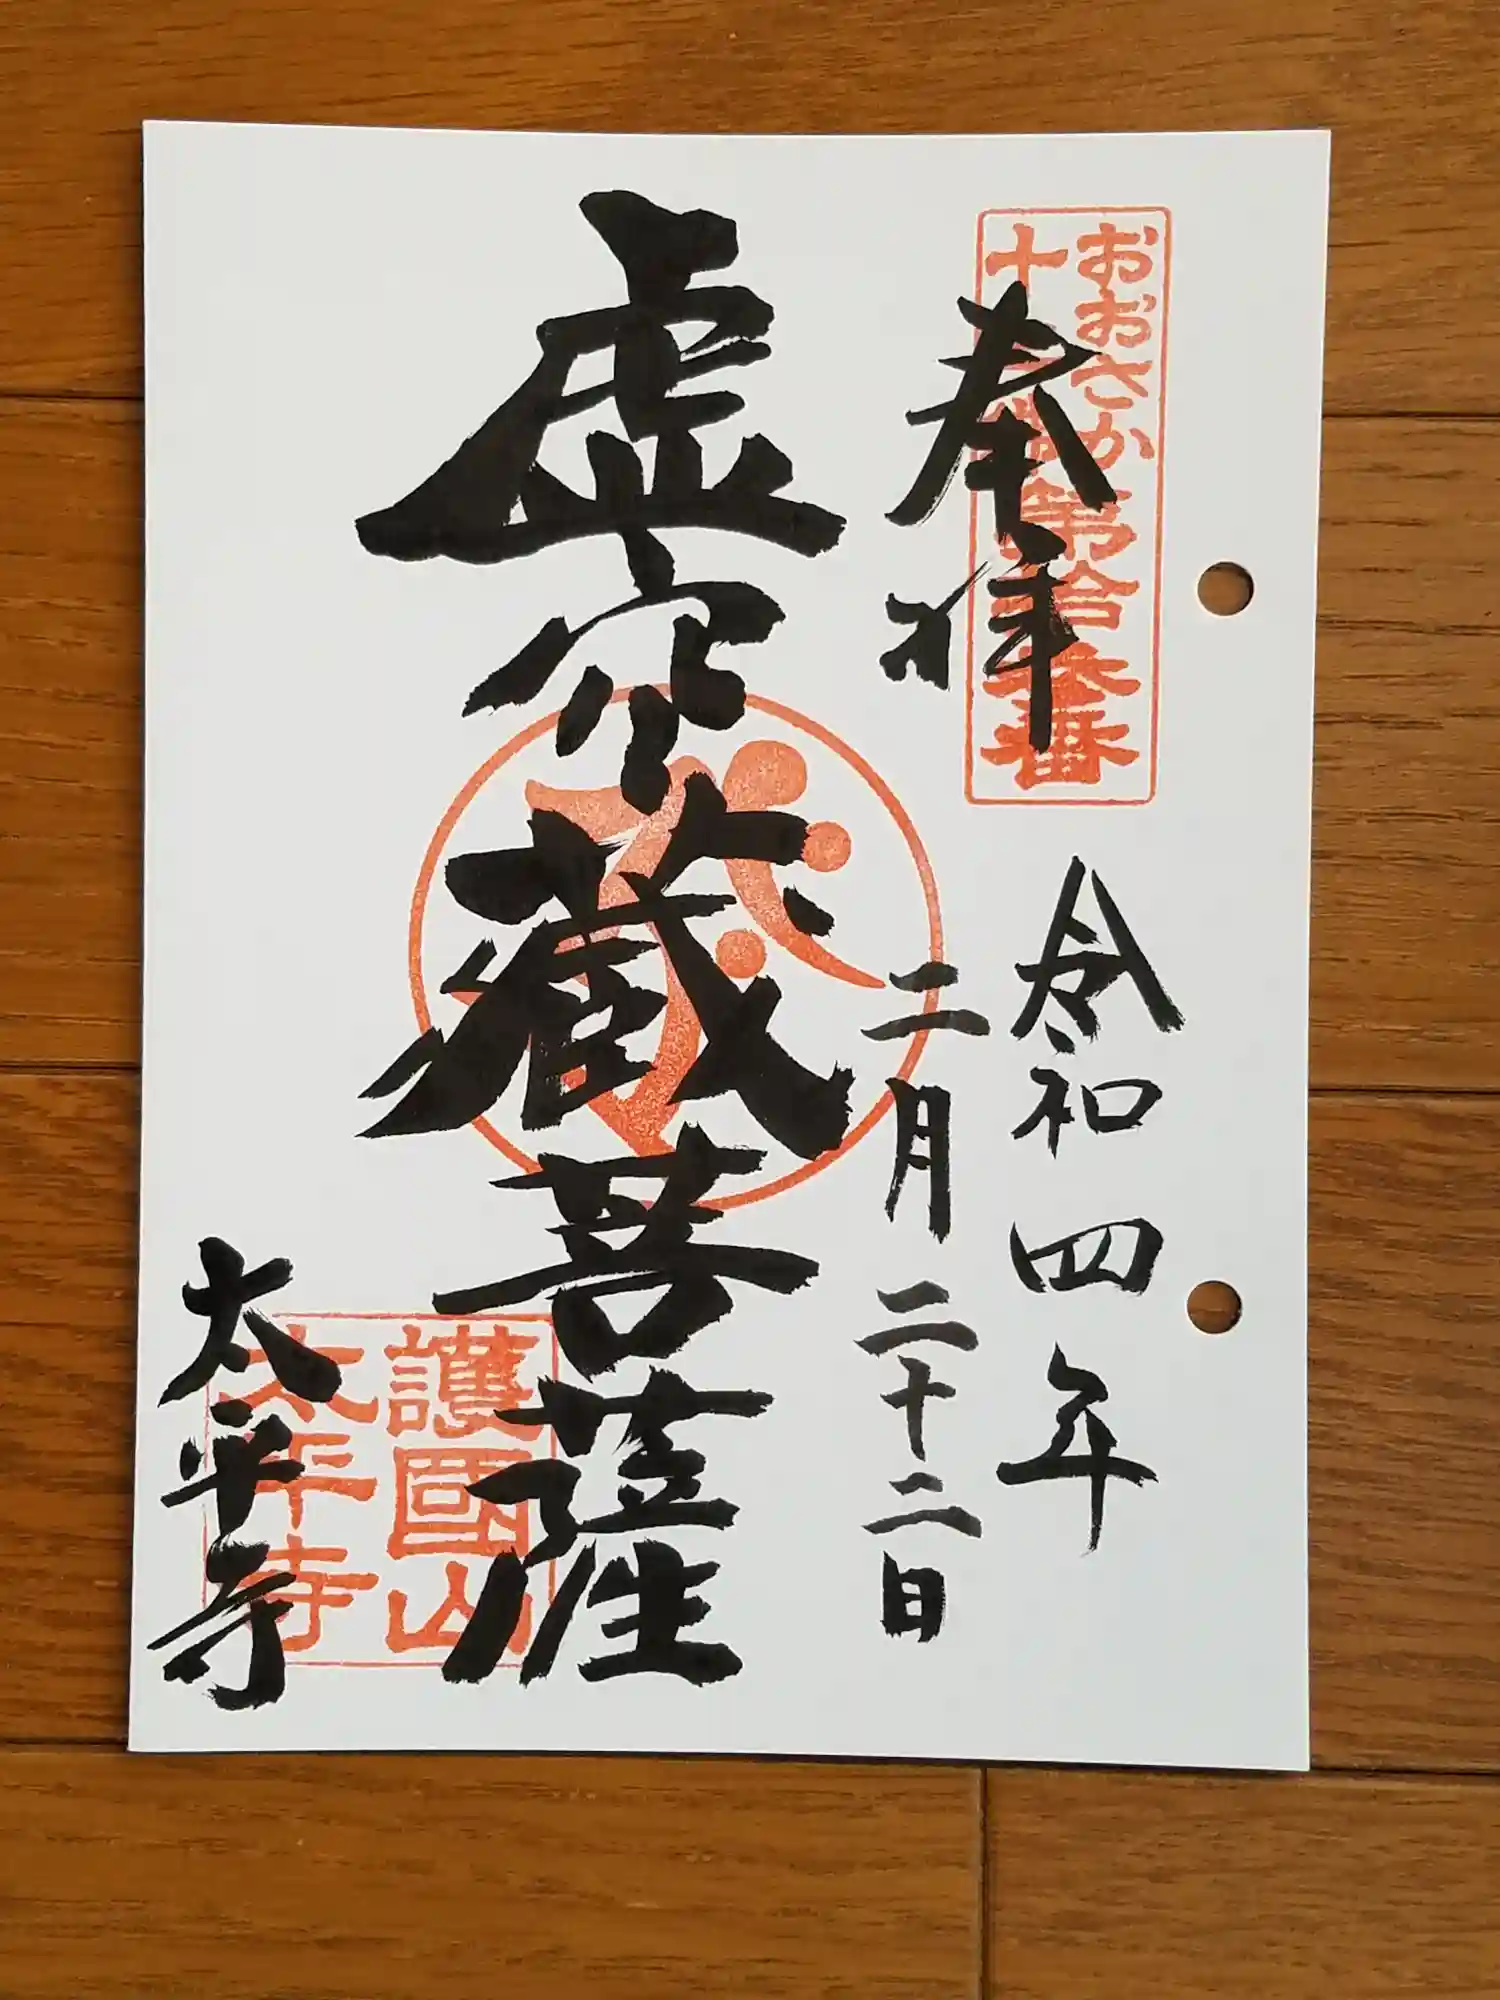 おおさか
十三佛第拾参番
奉拝
令和四年
二月二十二日
虚空蔵菩薩
護國山
太平寺
太平寺